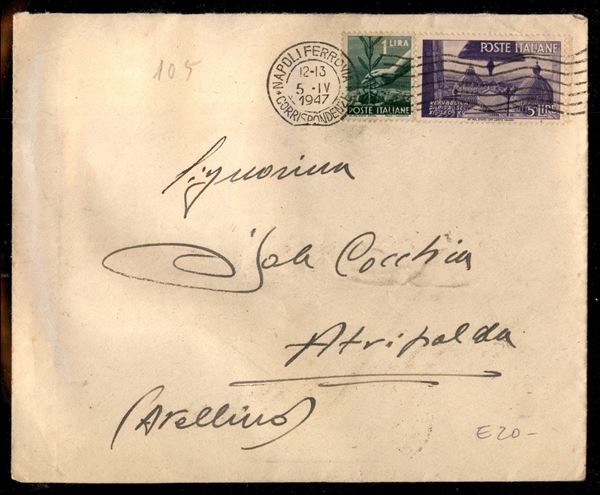 105
NAPOLI FERROVIA
12-13
5 · IV
1947
CORRISPONDENZE
1 LIRA
POSTE ITALIANE
POSTE ITALIANE
5 LIRE
Signorina
Cocchia
Atripalda
(Avellino)
E 20 -